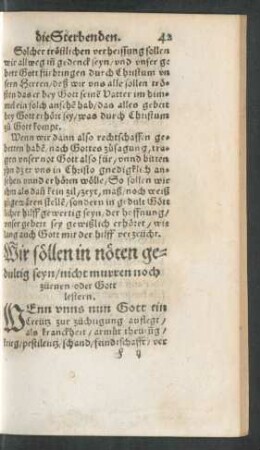 die Sterbenden. 42
Solcher tröstlichen verheissung sollen
wir allweg in gedenck seyn / vnd vnser ge
bett Gott fürbringen durch Christum vn
sern Herren / deß wir vns alle sollen trö
sten das er bey Gott seine Vatter im him
mel ein solch ansehē hab / das alles gebett
bey Gott erhört sey / was durch Christum
zů Gott kompt.
Wenn wir dann also rechtschaffen ge
betten habē, nach Gottes zůsagung, tra
gen vnser not Gott also für / vnnd bitten
jn dz er vns in Christo gnedigklich an
sehen vnnd erhören wölle / So sollen wir
jhm als daß kein zil / zeyt, maß, noch weiß
zů gewären stelle, sondern in gedult Gött
licher hilff gewertig seyn, der hoffnung /
vnser gebett sey gewißlich erhöret / wie
lang auch Gott mit der hilff verzeücht.
Wir söllen in nöten ge-
dultig seyn / nicht murren noch
zürnen oder Gott
lestern.
WEnn vnns nun Gott ein
Creütz zur züchtigung auflegt /
als kranckheit / armůt thewrūg /
krieg / pestilentz / schand / feindtschafft / ver
F ij